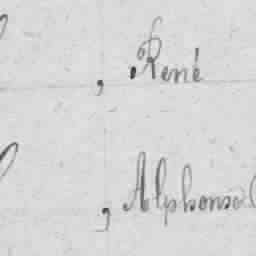 , René
, Alphonse